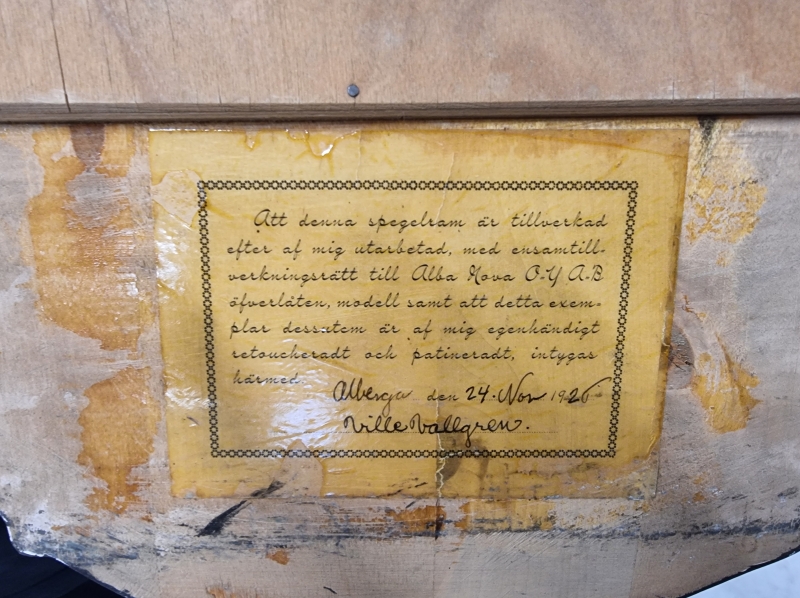 Att denna spegelram är tillverkad
efter af mig utarbetad, med ensamtill-
verkningsrätt till Alba Nova O-Y A-B
öfverlåten, modell samt att detta exem-
plar dessutom är af mig egenhändigt
retoucheradt och patineradt, intygas
härmed.
Alberga den 24. Nov 1926
Ville Vallgren.